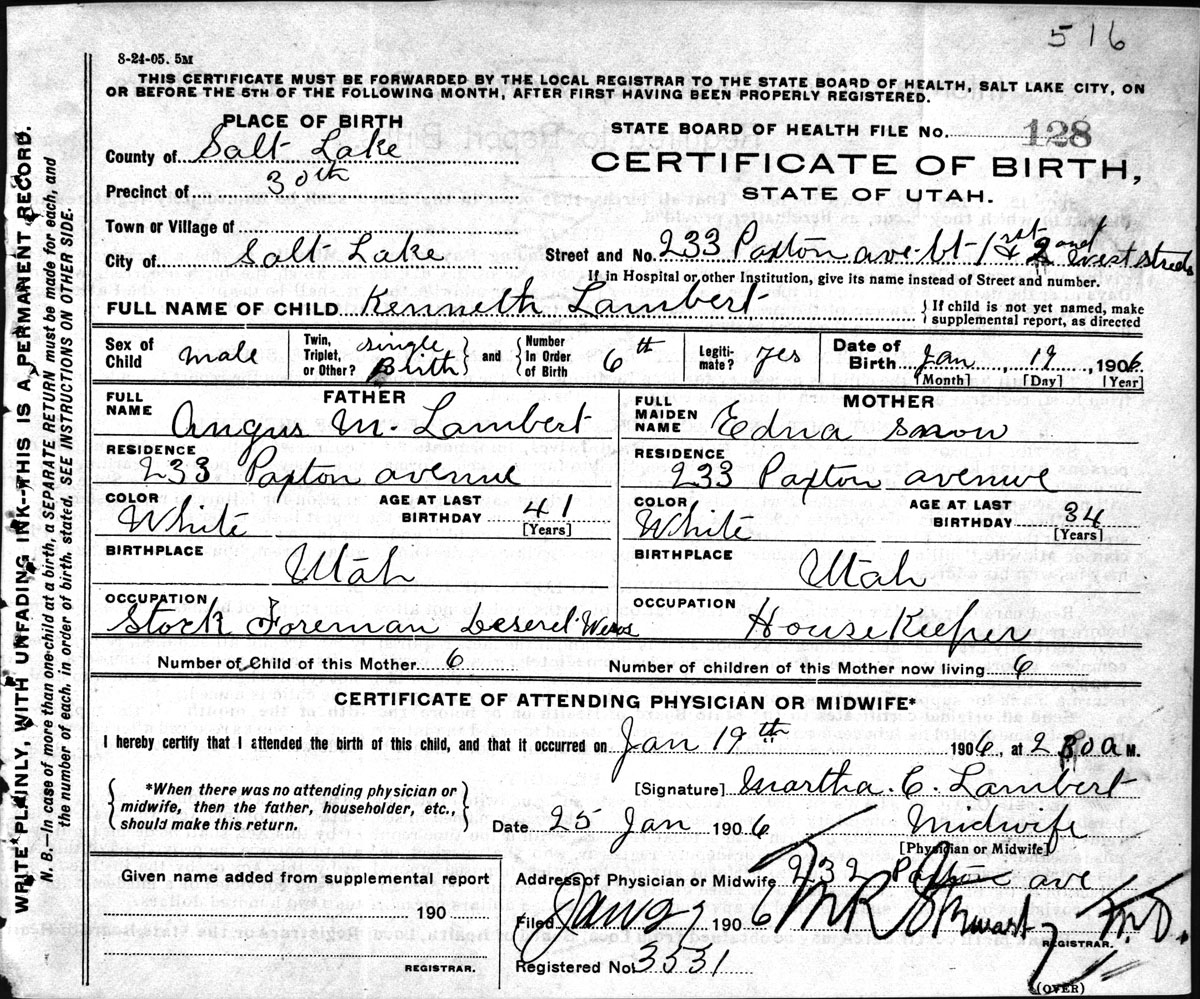 516
8-24-05. 5M
THIS CERTIFICATE MUST BE FORWARDED BY THE LOCAL REGISTRAR TO THE STATE BOARD OF HEALTH, SALT LAKE CITY, ON
OR BEFORE THE 5TH OF THE FOLLOWING MONTH, AFTER FIRST HAVING BEEN PROPERLY REGISTERED.
WRITE PLAINLY, WITH UNFADING INK--THIS IS A PERMANENT RECORD.
N. B.—In case of more than one child at a birth, a SEPARATE RETURN must be made for each, and
the number of each, in order of birth, stated. SEE INSTRUCTIONS ON OTHER SIDE.
PLACE OF BIRTH
County of Salt Lake
Precinct of 30th
Town or Village of
City of Salt Lake
STATE BOARD OF HEALTH FILE No. 128
CERTIFICATE OF BIRTH,
STATE OF UTAH.
Street and No. 233 Paxton ave bt 1rst & 2nd West streets
If in Hospital or other Institution, give its name instead of Street and number.
FULL NAME OF CHILD Kenneth Lambert
{If child is not yet named, make
supplemental report, as directed
Sex of Child male
Twin, Triplet, or Other? single Birth
and Number In Order of Birth 6th
Legitimate? yes
Date of Birth Jan, 19, 1906
[Month] [Day] [Year]
FATHER
FULL NAME Angus M. Lambert
RESIDENCE 233 Paxton avenue
COLOR White AGE AT LAST BIRTHDAY 41 [Years]
BIRTHPLACE Utah
OCCUPATION Stock Foreman Deseret
MOTHER
FULL MAIDEN NAME Edna Snow
RESIDENCE 233 Paxton avenue
COLOR White AGE AT LAST BIRTHDAY 34 [Years]
BIRTHPLACE Utah
OCCUPATION House Keeper
Number of Child of this Mother 6 Number of children of this Mother now living 6
CERTIFICATE OF ATTENDING PHYSICIAN OR MIDWIFE*
I hereby certify that I attended the birth of this child, and that it occurred on Jan 19th 1906, at 2 30 a M.
{*When there was no attending physician or
midwife, then the father, householder, etc.,
should make this return.}
[Signature] Martha. C. Lambert
Date 25 Jan 1906 Midwife
[Physician or Midwife]
Given name added from supplemental report
190
REGISTRAR.
Address of Physician or Midwife 232 Paxton ave
Filed Jan 27 1906 M R Stewart M.D.
REGISTRAR.
Registered No. 3531
(OVER)